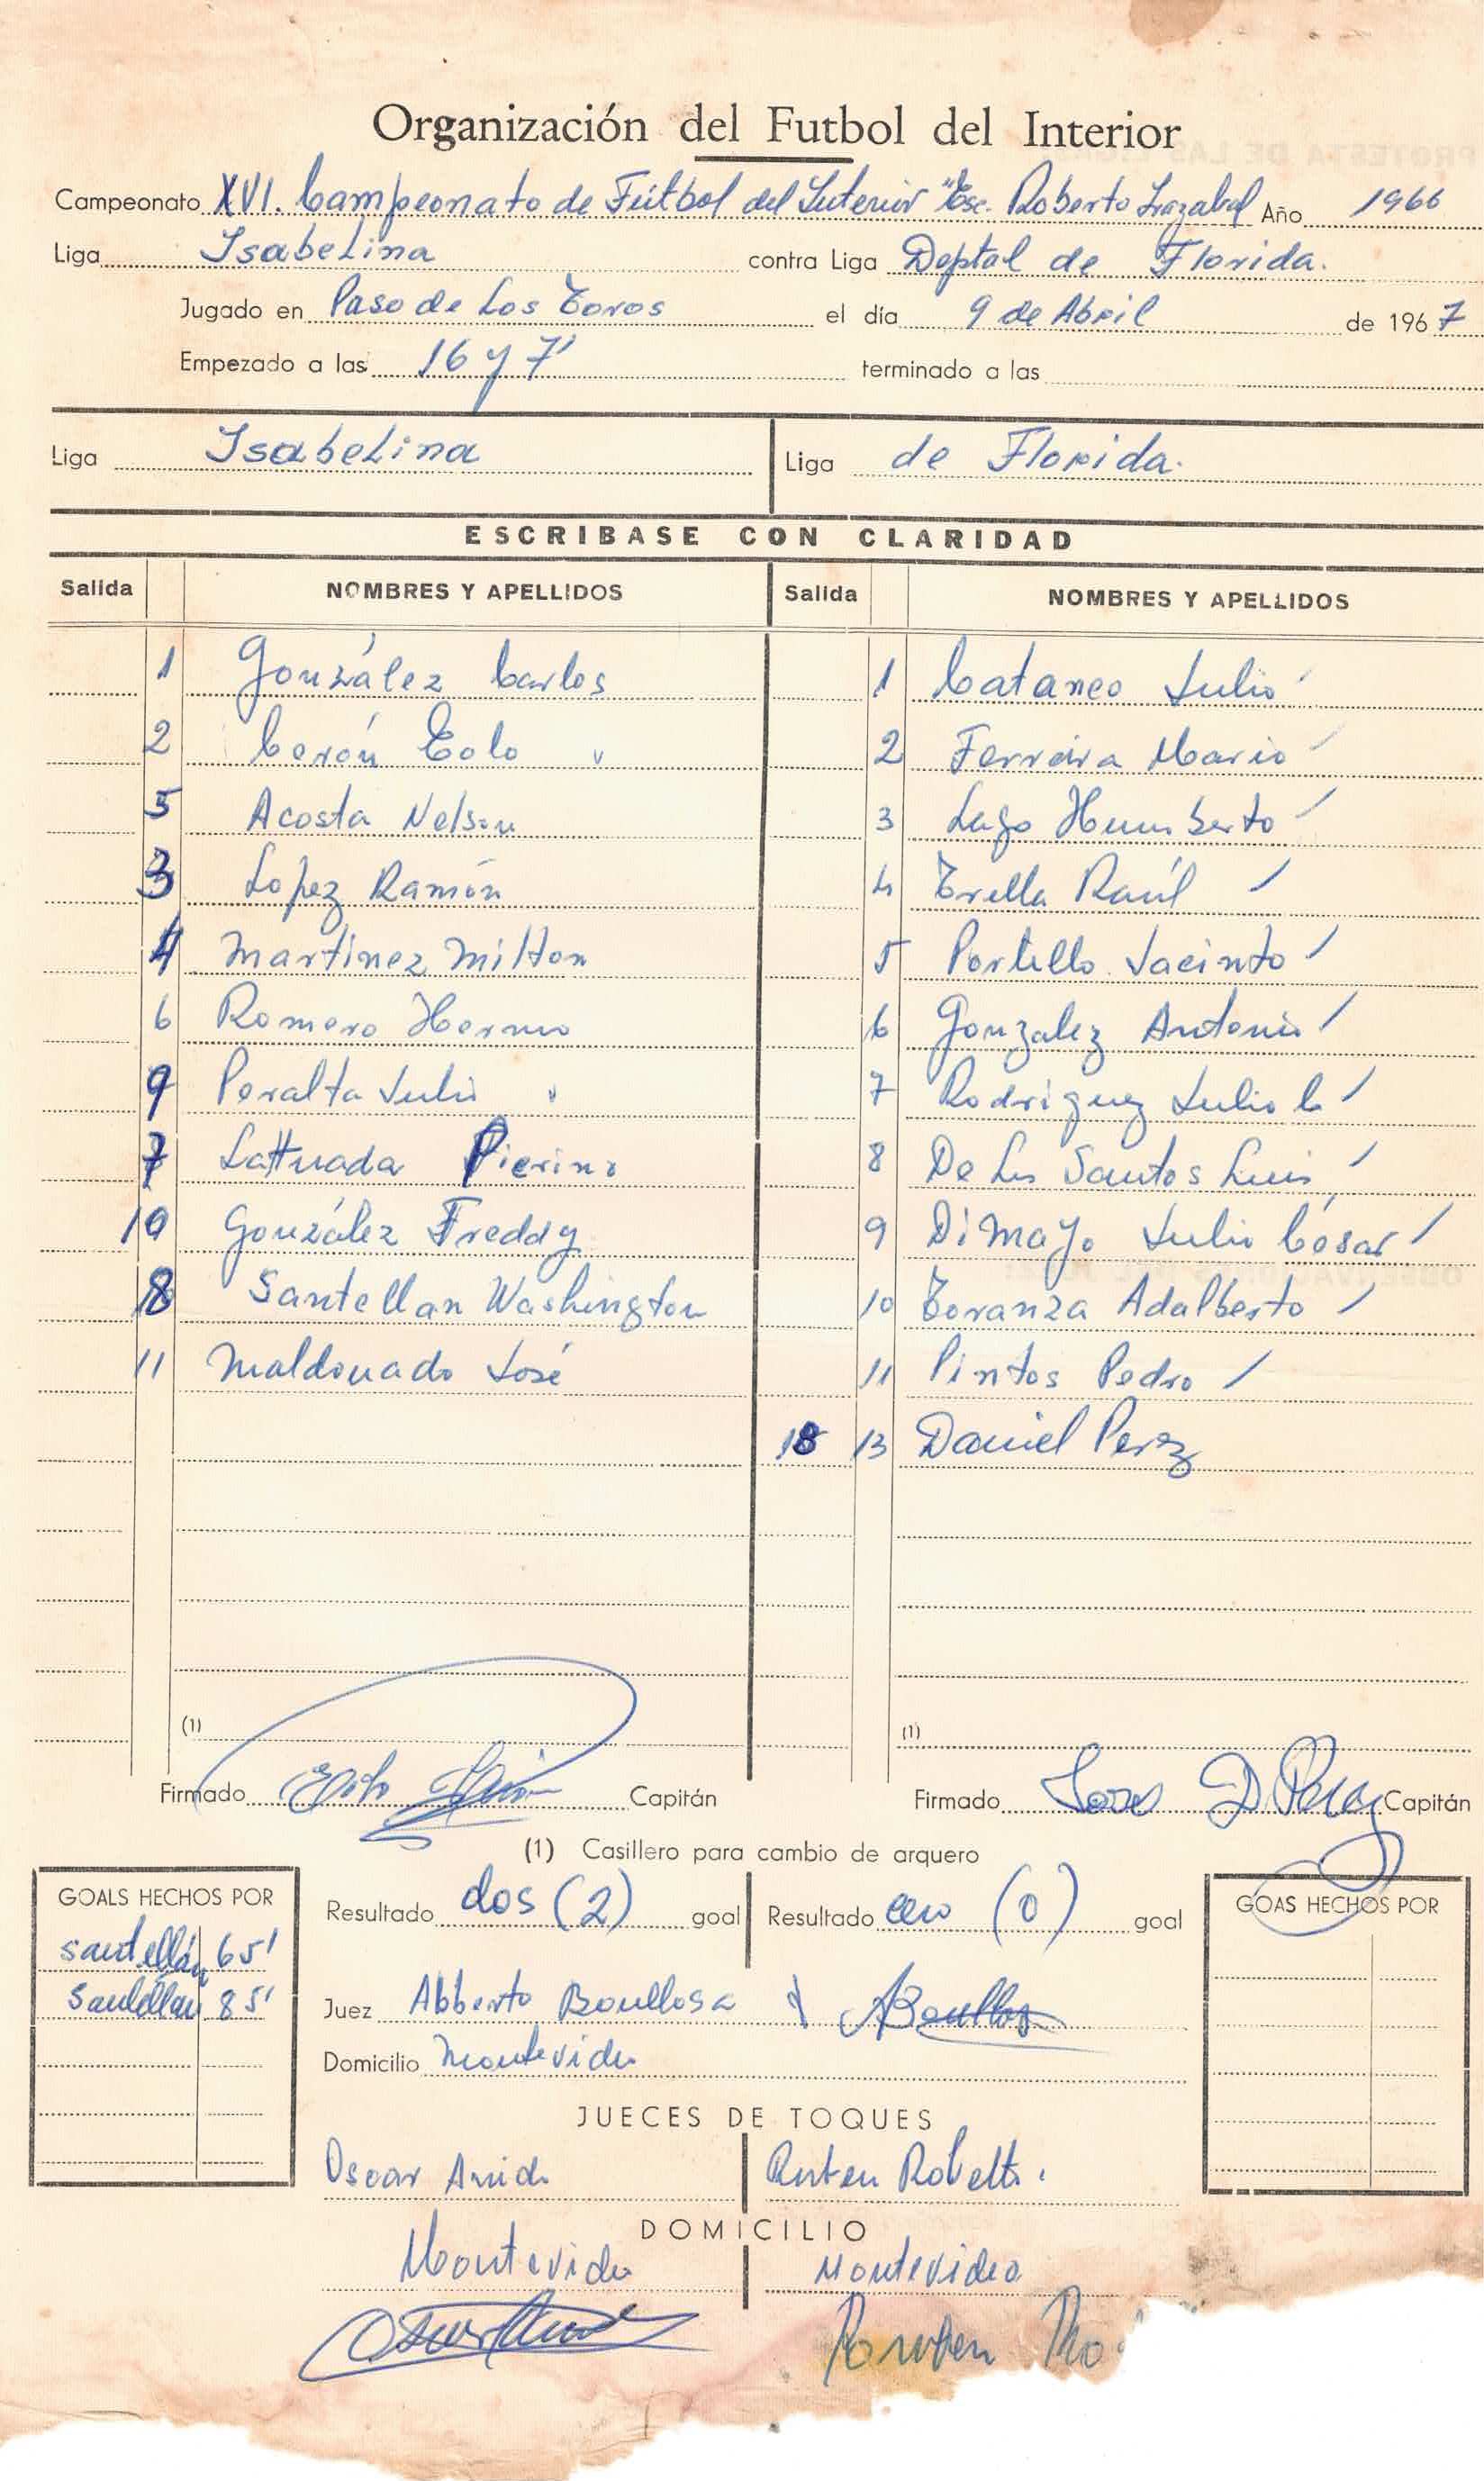 Organización del Futbol del Interior
Campeonato XVI. Campeonato de Fútbol del Interior "Esc. Roberto Irazabal Año 1966
Liga Isabelina contra Liga Deptal de Florida.
Jugado en Paso de Los Toros el día 9 de Abril de 1967
Empezado a las 16 y 7' terminado a las
Liga Isabelina Liga de Florida.
ESCRIBASE CON CLARIDAD
Salida NOMBRES Y APELLIDOS Salida NOMBRES Y APELLIDOS
1 González Carlos 1 Cataneo Julio
2 Cerón Tolo 2 Ferreira Mario
5 Acosta Nelson 3 Lago Humberto
3 Lopez Ramón 4 Trella Raúl
4 Martinez Milton 5 Portillo Jacinto
6 Romero 6 Gonzalez Antonio
9 Peralta Julio 7 Rodriguez Julio C
7 Lattuada Pierino 8 De Los Santos Luis
10 González Freddy 9 Di Mayo Julio César
8 Santellan Washington 10 Toranza Adalberto
11 Maldonado José 11 Pintos Pedro
18 13 Daniel Perez
(1) (1)
Firmado Capitán Firmado D. Perez Capitán
(1) Casillero para cambio de arquero
GOALS HECHOS POR Resultado dos (2) goal Resultado cero (0) goal GOAS HECHOS POR
Santellán 65'
Santellan 85'
Juez Alberto Boullosa ABoullosa
Domicilio Montevideo
JUECES DE TOQUES
Oscar Ruben
DOMICILIO
Montevideo Montevideo
Ruben